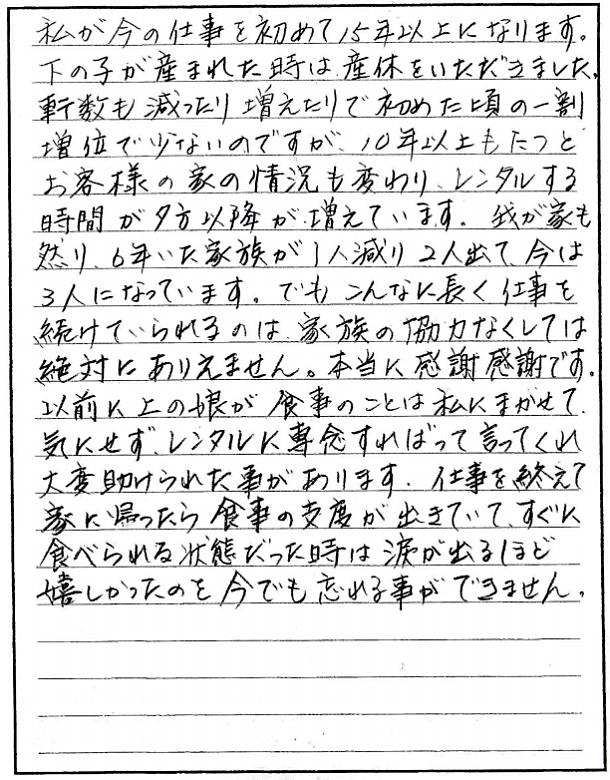 私が今の仕事を初めて15年以上になります。
下の子が産まれた時は、産休をいただきました。
軒数も減ったり増えたりで初めた頃の一割
増位で少ないのですが、10年以上もたつと
お客様の家の情況も変わり、レンタルする
時間が夕方以降が増えています。我が家も
然り、6年いた家族が1人減り2人出て、今は
3人になっています。でもこんなに長く仕事を
続けていられるのは、家族の協力なくしては
絶対にありえません。本当に感謝感謝です。
以前に上の娘が食事のことは私にまかせて、
気にせず、レンタルに専念すればって言ってくれ
大変助けられた事があります。仕事を終えて
家に帰ったら食事の支度が出きていて、すぐに
食べられる状態だった時は涙が出るほど
嬉しかったのを今でも忘れる事ができません。